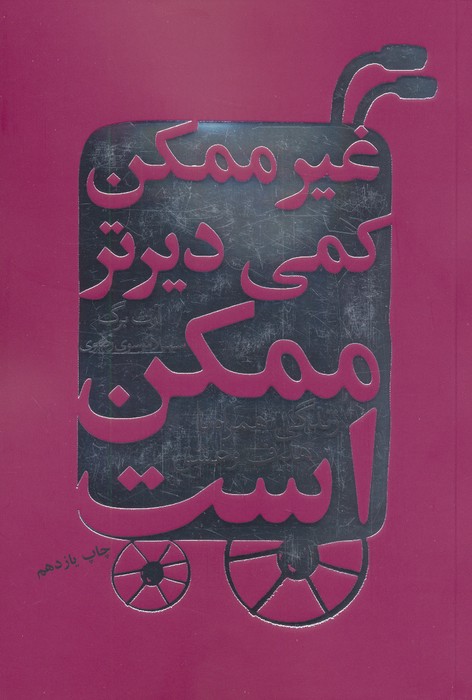 غیر ممکن
کمی دیرتر
ممکن
است
آرت برگ
چاپ یازدهم